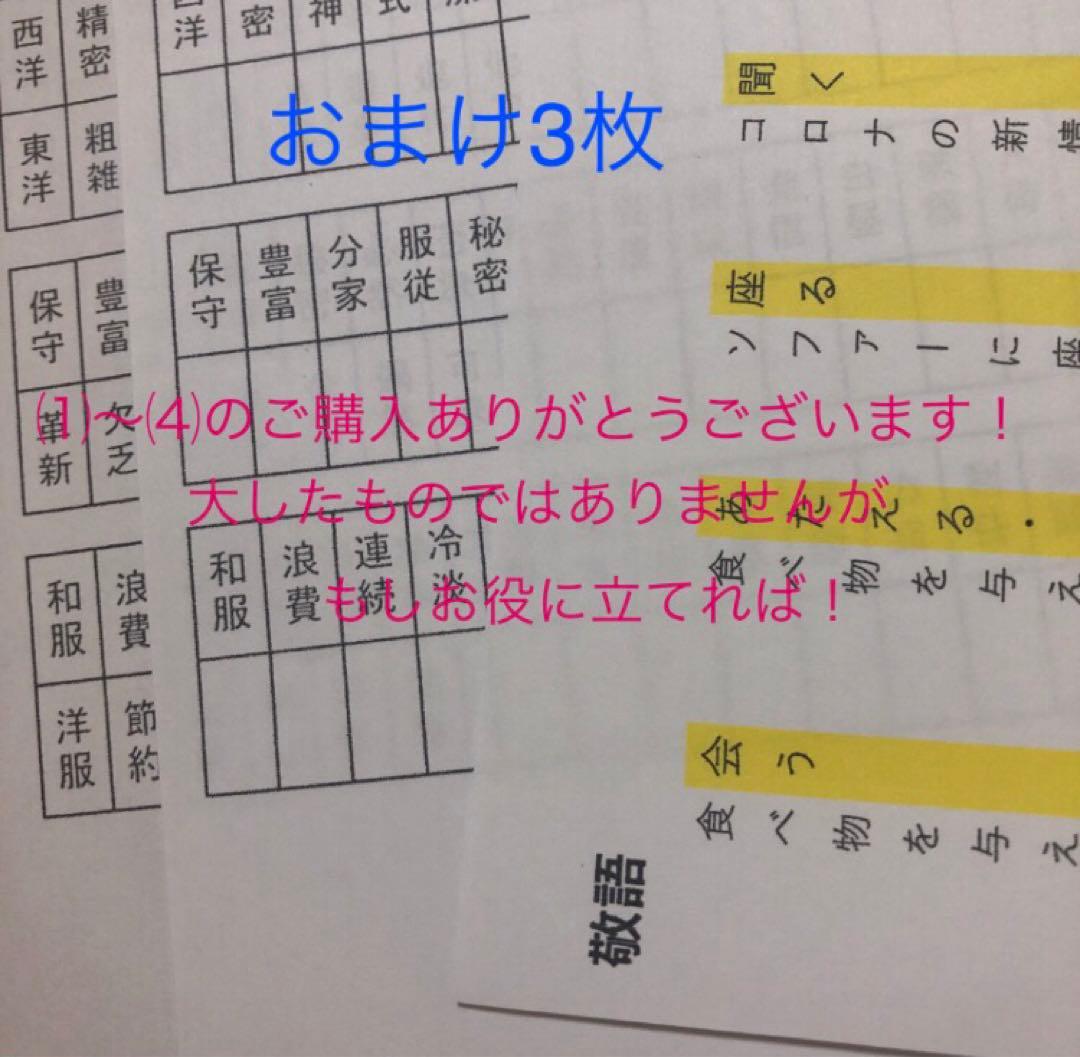 おまけ3枚
⑴〜⑷のご購入ありがとうございます！
大したものではありませんが
もしお役に立てれば！
西洋 精密
東洋 粗雑
保守 豊富
革新 欠乏
和服 浪費
洋服 節約
洋 密 神 式
保守 豊富 分家 服従 秘密
和服 浪費 連続 冷淡
敬語
会う
食べ物を与え
あたえる・
食べ物を与え
座る
ソファーに座
聞く
コロナの新情